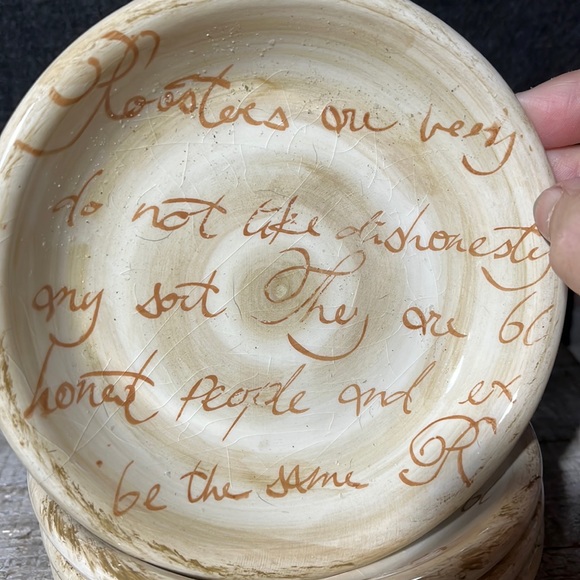 Roosters are very
do not like dishonesty
my sort They are bl
honest people and ex
be the same R